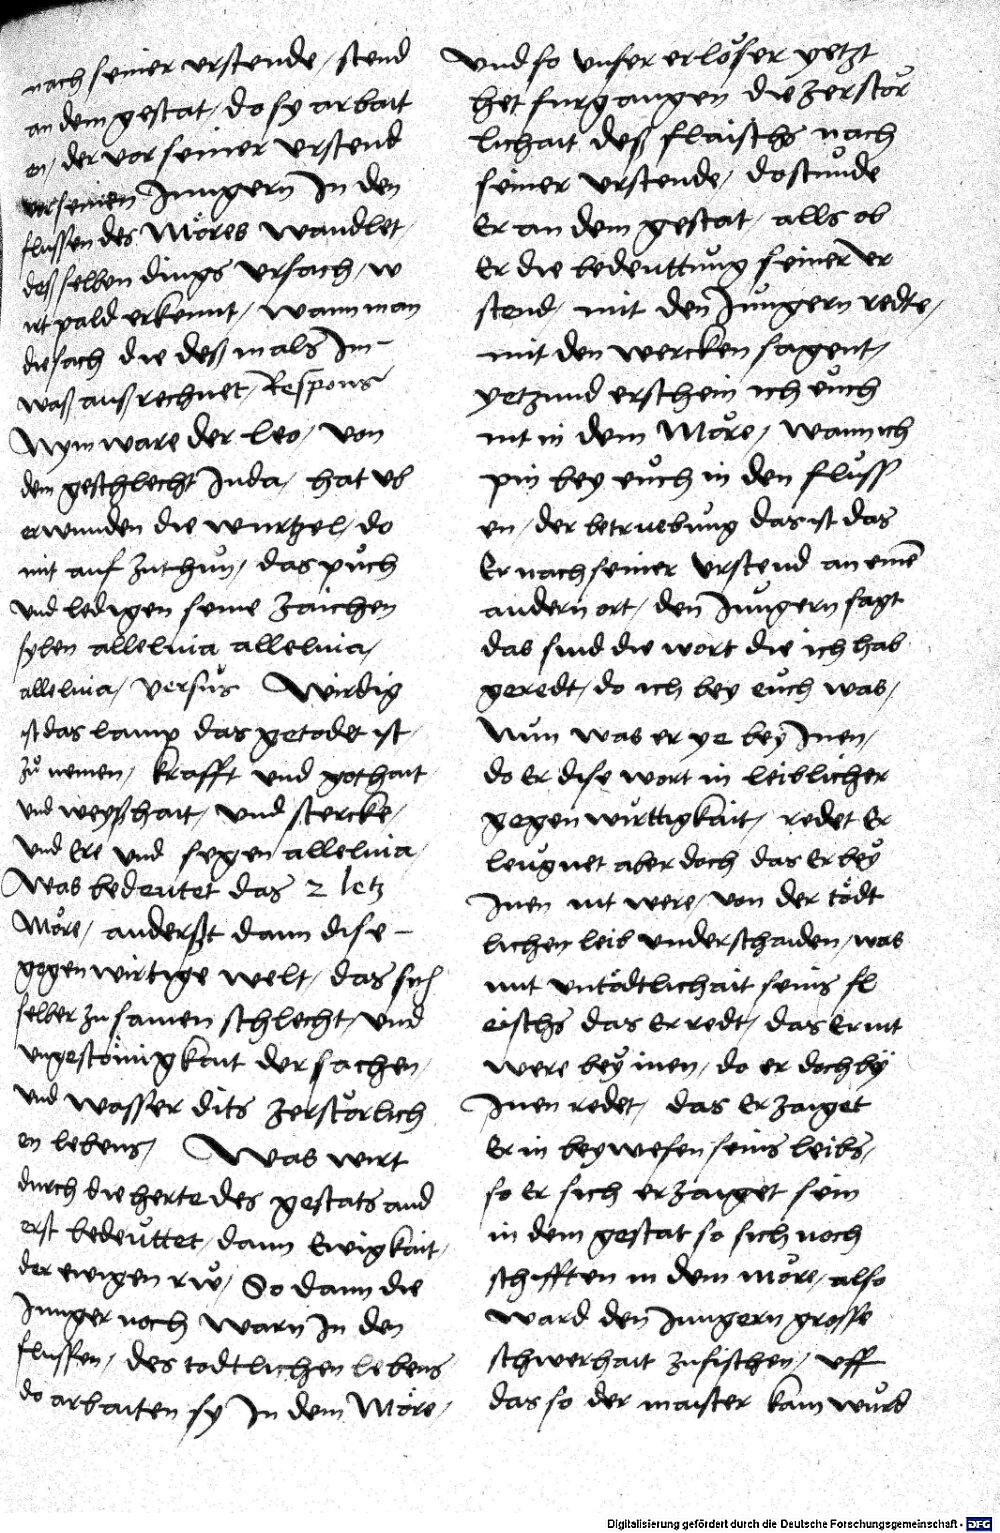 nach seiner urstende / stend
an dem gestat / do sy arbait
en / der vor seiner urstend
vor seinen Jungern In den
flussen des Möres wandlet /
deß selben dings ursach / w
irt pald erkennt / wann man
die sach die deß mals Im -
waß auß rechnet / Respons
Nym ware der leo / von
dem geschlecht Juda / hat vb
erwunden die wurtzel / do
mit auf zuthun / das půch
und ledigen seine zaichen
syben alleluia alleluia /
alleluia / versus Wirdig
ist das lamp das getodet ist /
zů nemen / krafft und gothait
und weyßhait / und stercke /
und Ere und segen alleluia /
Was bedeutet das 2 letz
Möre / anderßt dann dise -
gegenwirtige welt / das sich
selber zu samen schlecht / und
ungestöinigkait der sachen /
und wasser dits zerstörlich
en lebens / Was wirt
durch die herte des gestats and
erst bedeüttet / dann Ewigkait /
der ewigen rẘ / So dann die
Junger noch warn In den
flussen / des todtlichen lebens
do arbaiten sy In dem Möre /
Und so unser erlöser yetzt
het furgangen die zerstör
lichait deß flaischs nach
seiner urstende / do stunde
Er an dem gestat / alls ob
Er die bedeuttung seiner ver
stend / mit den Jungern redte /
mit den wercken sagent /
yetzund erschein ich euch
nit in dem Möre / wann ich
pin bey euch in den fluss
en / der betruebung das ist das
Er nach seiner urstend an einē
andern ort / den Jungern sagt
das sind die wort die ich hab
geredt / do ich bey euch was /
Nun was er ye bey Inen /
do Er dise wort in leiblicher
gegenwürttigkait / redet Er
leugnet aber doch das Er bey
Inen nit were / von der tödt
lichen leib underschaiden / was
mit untödtlichait seins fl
eischs das Er redt / das Er nit
were bey inen / do er doch bÿ
Inen redet / das Er zaiget
Er in beywesen seins leibs /
so Er sich erzaiget sein
in dem gestat so sich noch
schifften in dem möre / also
ward den Jungern grosse
schwerhait zufischen / uff
das so der maister kam wurd
Digitalisierung gefördert durch die Deutsche Forschungsgemeinschaft - DFG